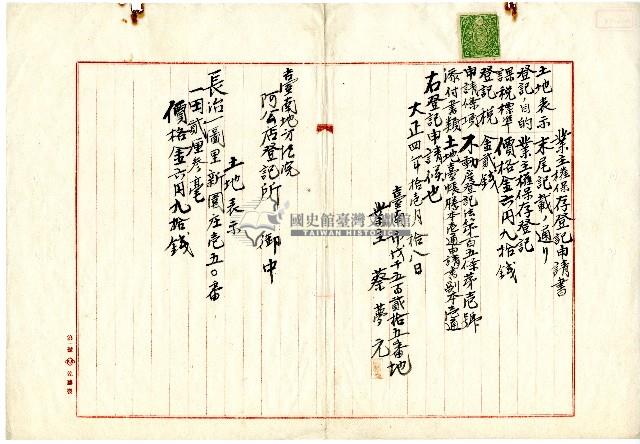 業主權保存登記申請書
土地表示 末尾記載ノ通リ
登記ノ目的 業主權保存登記
課稅標準 價格金六円九拾錢
登記稅 金貳錢
申請條項 不動產登記法第百五條第壱號
添付書類 土地臺帳謄本壱通申請書副本壱通
右登記申請候也
大正四年拾壱月拾八日
臺南市戊千五百貳拾五番地
業主 蔡夢元
臺南地方法院
阿公店登記所 御中
土地表示
長治一圖里新園庄壱五〇番
一田貳厘參毫
價格金六円九拾錢
國史館臺灣文獻館
TAIWAN HISTORICA